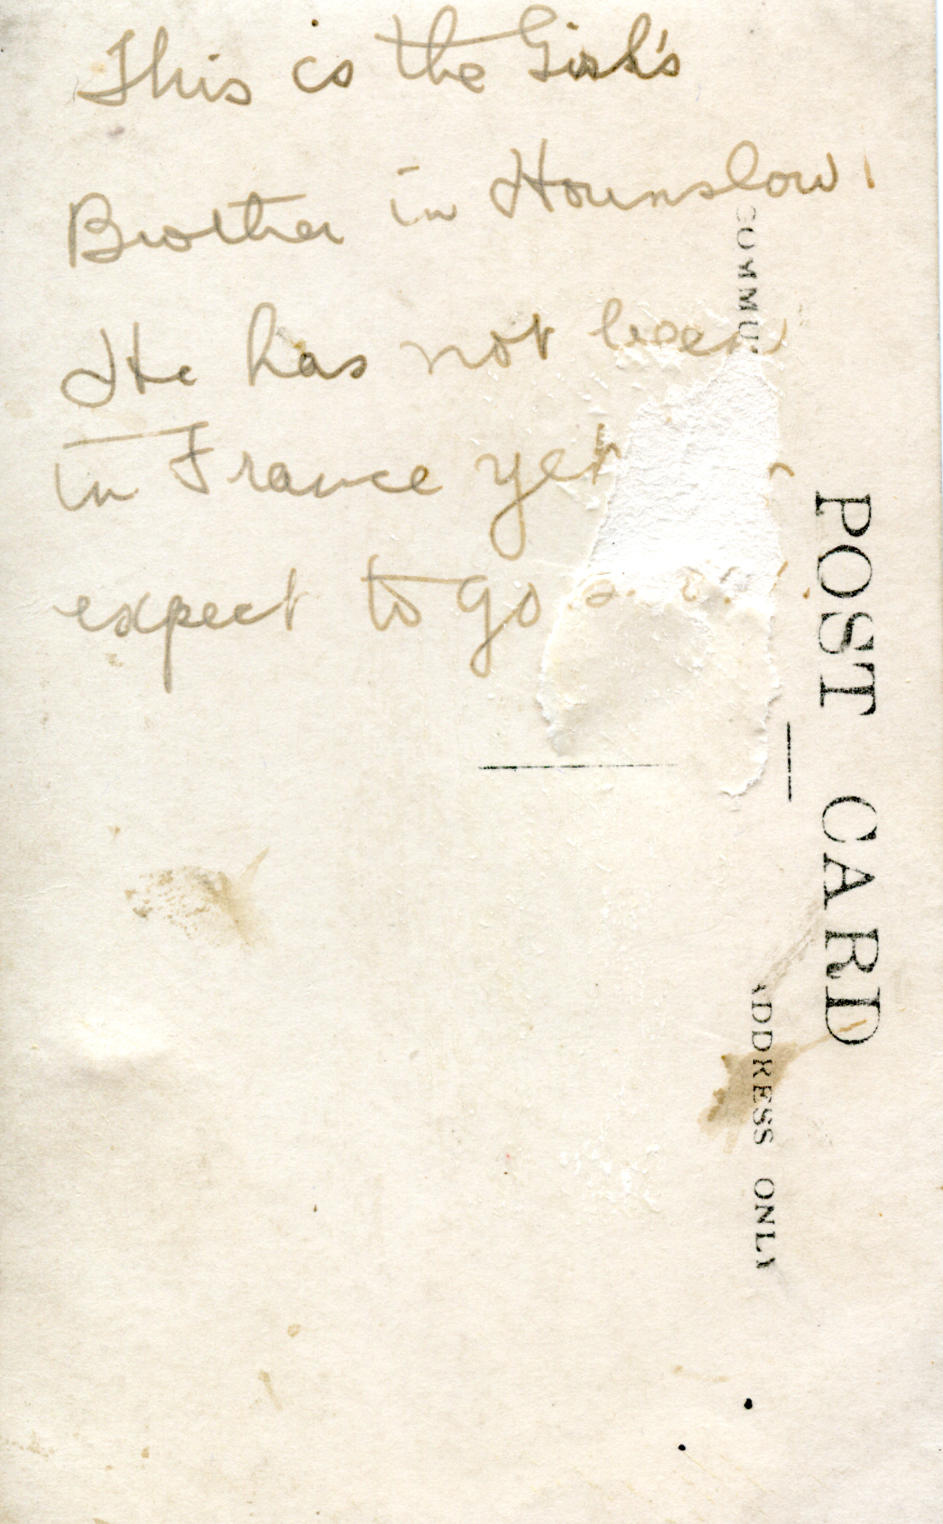 This is the Girl's
Brother in Hounslow.
He has not been
in France yet
expect to go
COMMU
POST CARD
ADDRESS ONLY